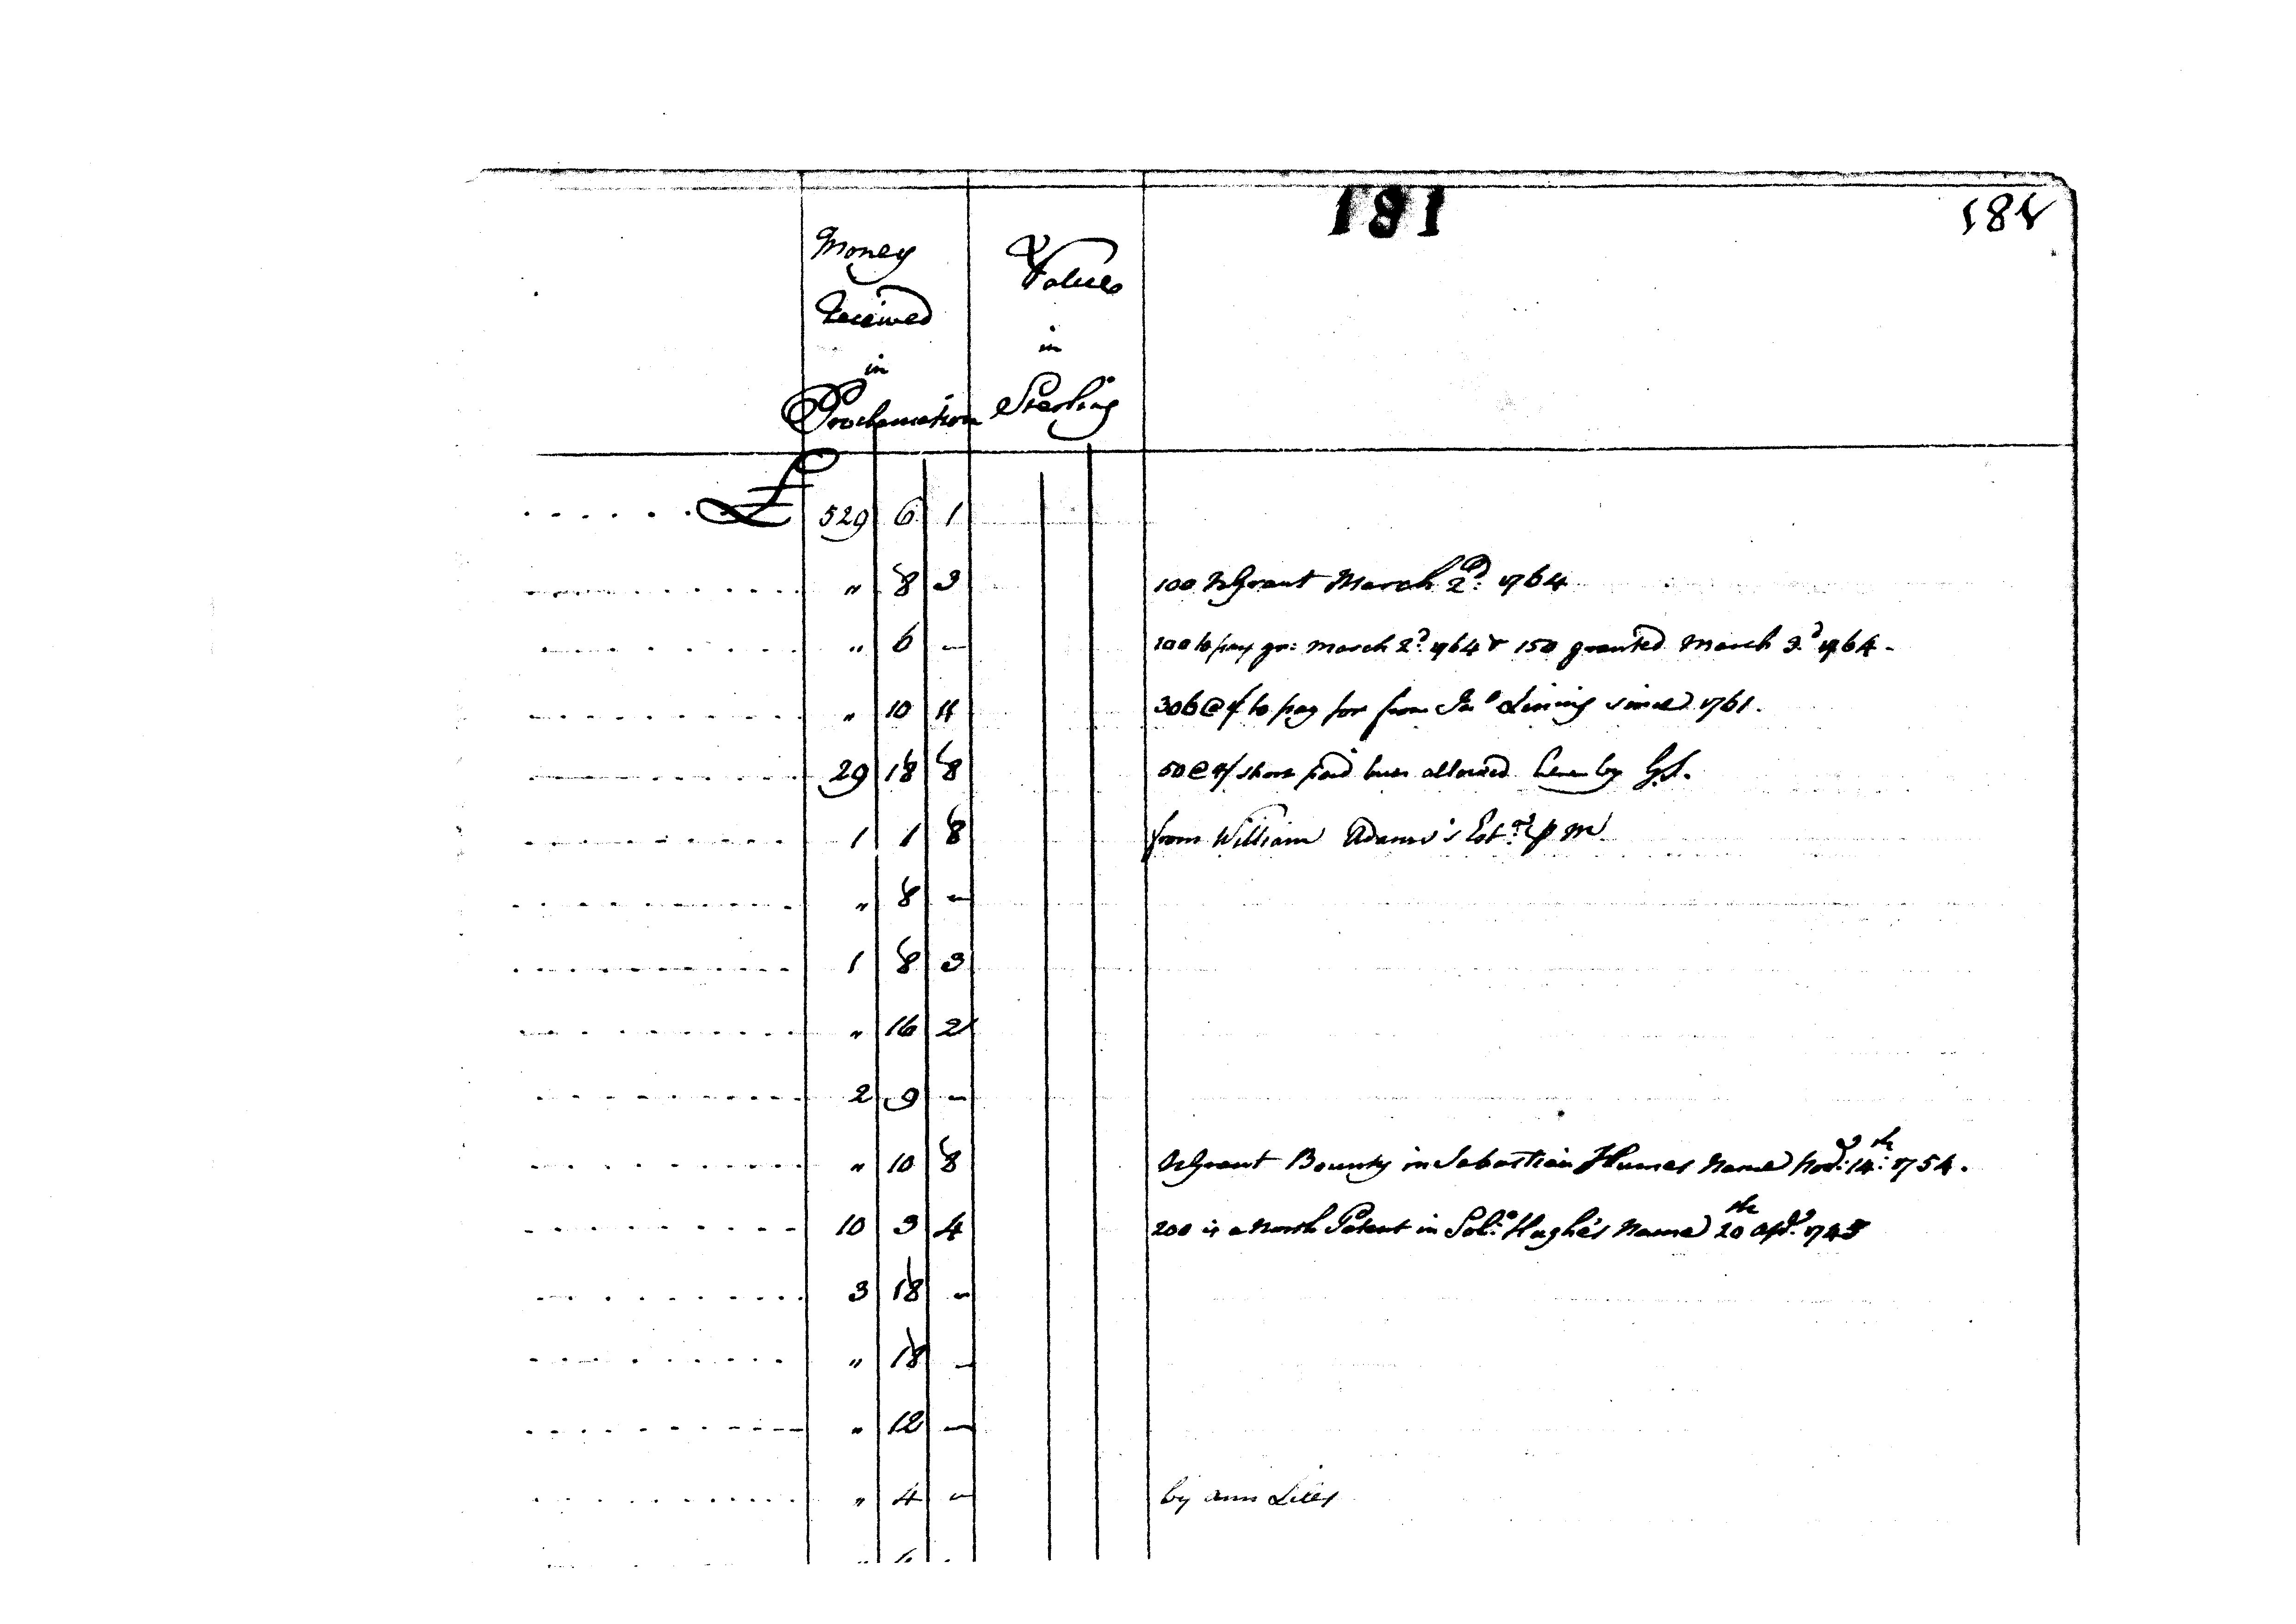 181
181
Money Received in Proclamation
Value in Sterling
£ 529 6 1
" 8 3 100 Grant March 2d. 1764
" 6 — 200 to pay gr: March 2d. 1764 & 150 granted March 3d 1764.
" 10 11 306 @ 4/ to pay for from Jno Lining since 1761.
29 18 8 50 @ 4/ short paid but allowed here by G.S.
1 1 8 from William Adams's Estate p m
" 8 —
1 8 3
" 16 2
2 9 —
" 10 8 Grant Bounty in Sebastian Humes Name Novr: 14th: 1754.
10 3 4 200 is a North Patent in Solo: Hughes Name 20th Apl. 1745
3 18 —
" 18 —
" 12 —
" 4 — by Ann Liles